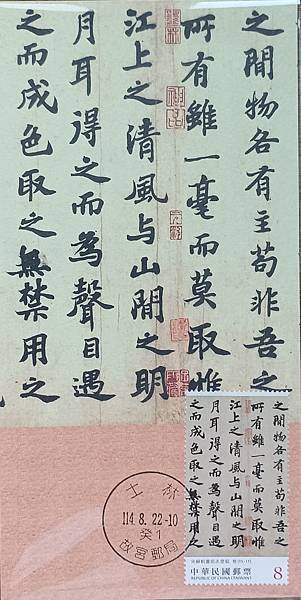 之間物各有主苟非吾之
所有雖一毫而莫取惟
江上之清風与山間之明
月耳得之而為聲目遇
之而成色取之無禁用之
之間物各有主苟非吾之
所有雖一毫而莫取惟
江上之清風与山間之明
月耳得之而為聲目遇
之而成色取之無禁用之
士林
114.8.22-10
癸1
故宮郵局
中華民國郵票
REPUBLIC OF CHINA (TAIWAN)
8